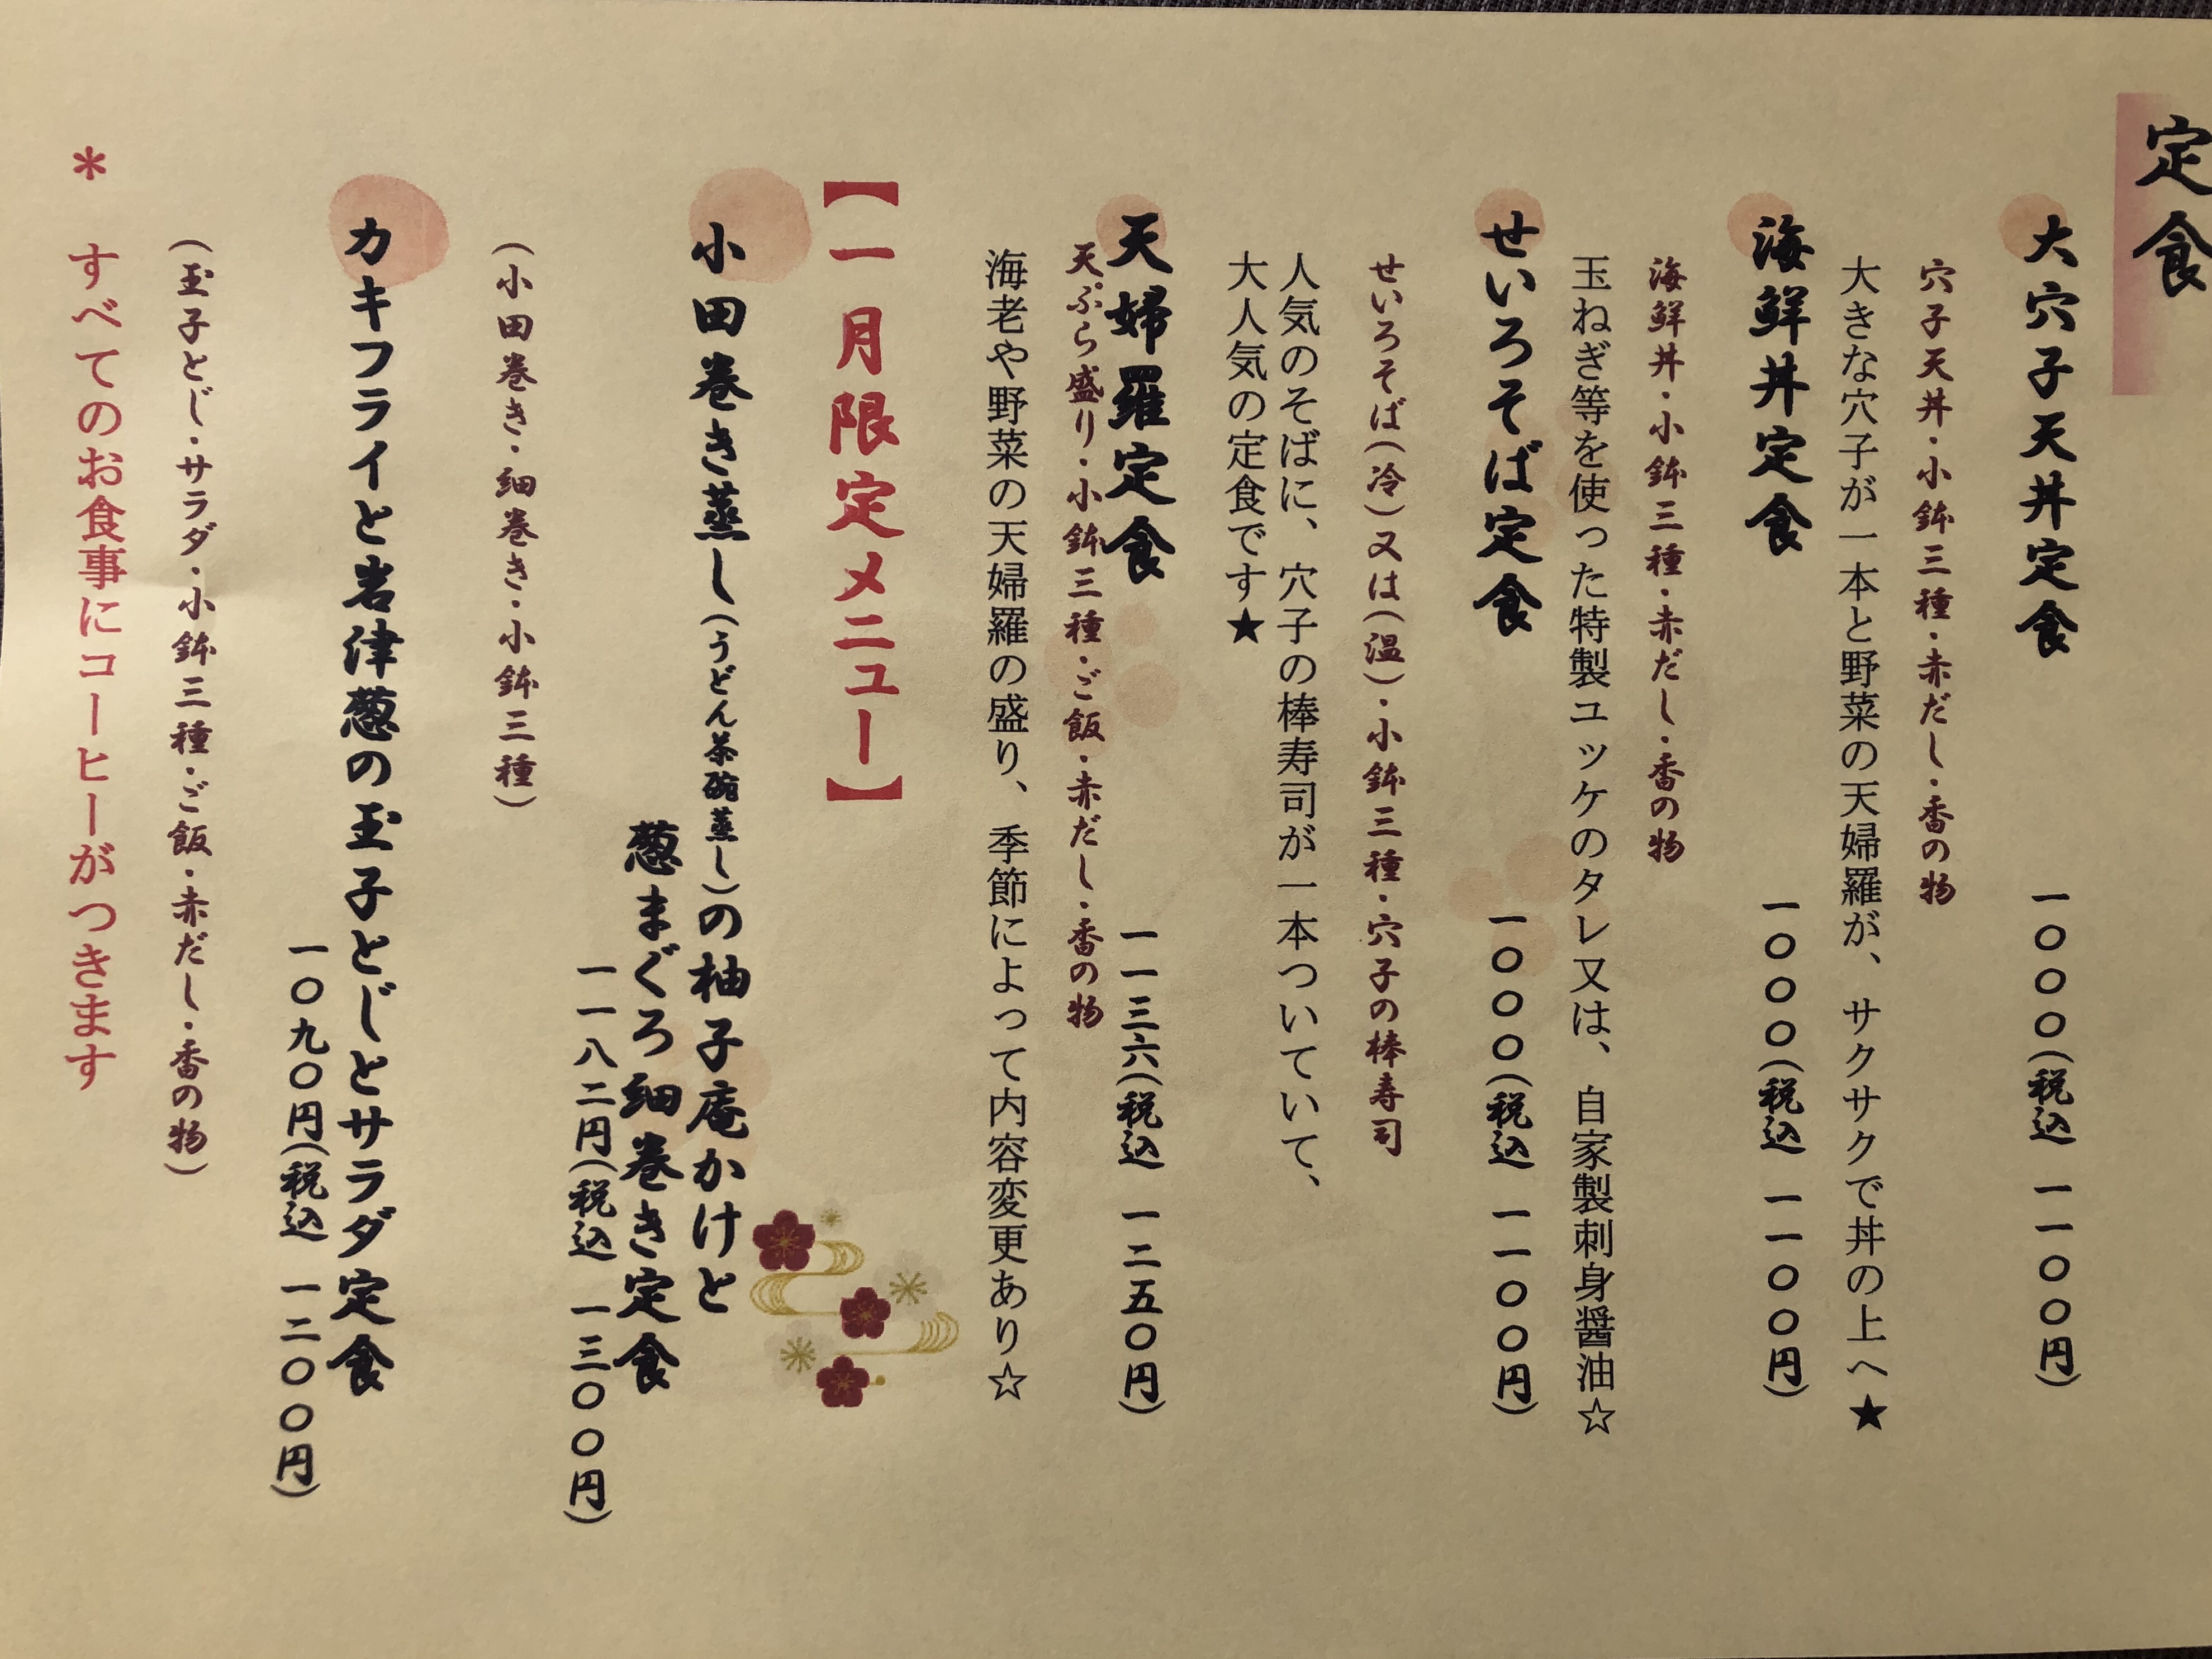 定食
大穴子天丼定食 一〇〇〇(税込 一一〇〇円)
穴子天丼・小鉢三種・赤だし・香の物
大きな穴子が一本と野菜の天婦羅が、サクサクで丼の上へ★
海鮮丼定食 一〇〇〇(税込 一一〇〇円)
海鮮丼・小鉢三種・赤だし・香の物
玉ねぎ等を使った特製ユッケのタレ又は、自家製刺身醤油☆
せいろそば定食 一〇〇〇(税込 一一〇〇円)
せいろそば(冷)又は(温)・小鉢三種・穴子の棒寿司
人気のそばに、穴子の棒寿司が一本ついていて、
大人気の定食です★
天婦羅定食 一一三六(税込 一二五〇円)
天ぷら盛り・小鉢三種・ご飯・赤だし・香の物
海老や野菜の天婦羅の盛り、季節によって内容変更あり☆
【一月限定メニュー】
小田巻き蒸し(うどん茶碗蒸し)の柚子庵かけと
葱まぐろ細巻き定食
一一八二円(税込 一三〇〇円)
(小田巻き・細巻き・小鉢三種)
カキフライと岩津葱の玉子とじとサラダ定食
一〇九〇円(税込 一二〇〇円)
(玉子とじ・サラダ・小鉢三種・ご飯・赤だし・香の物)
＊ すべてのお食事にコーヒーがつきます